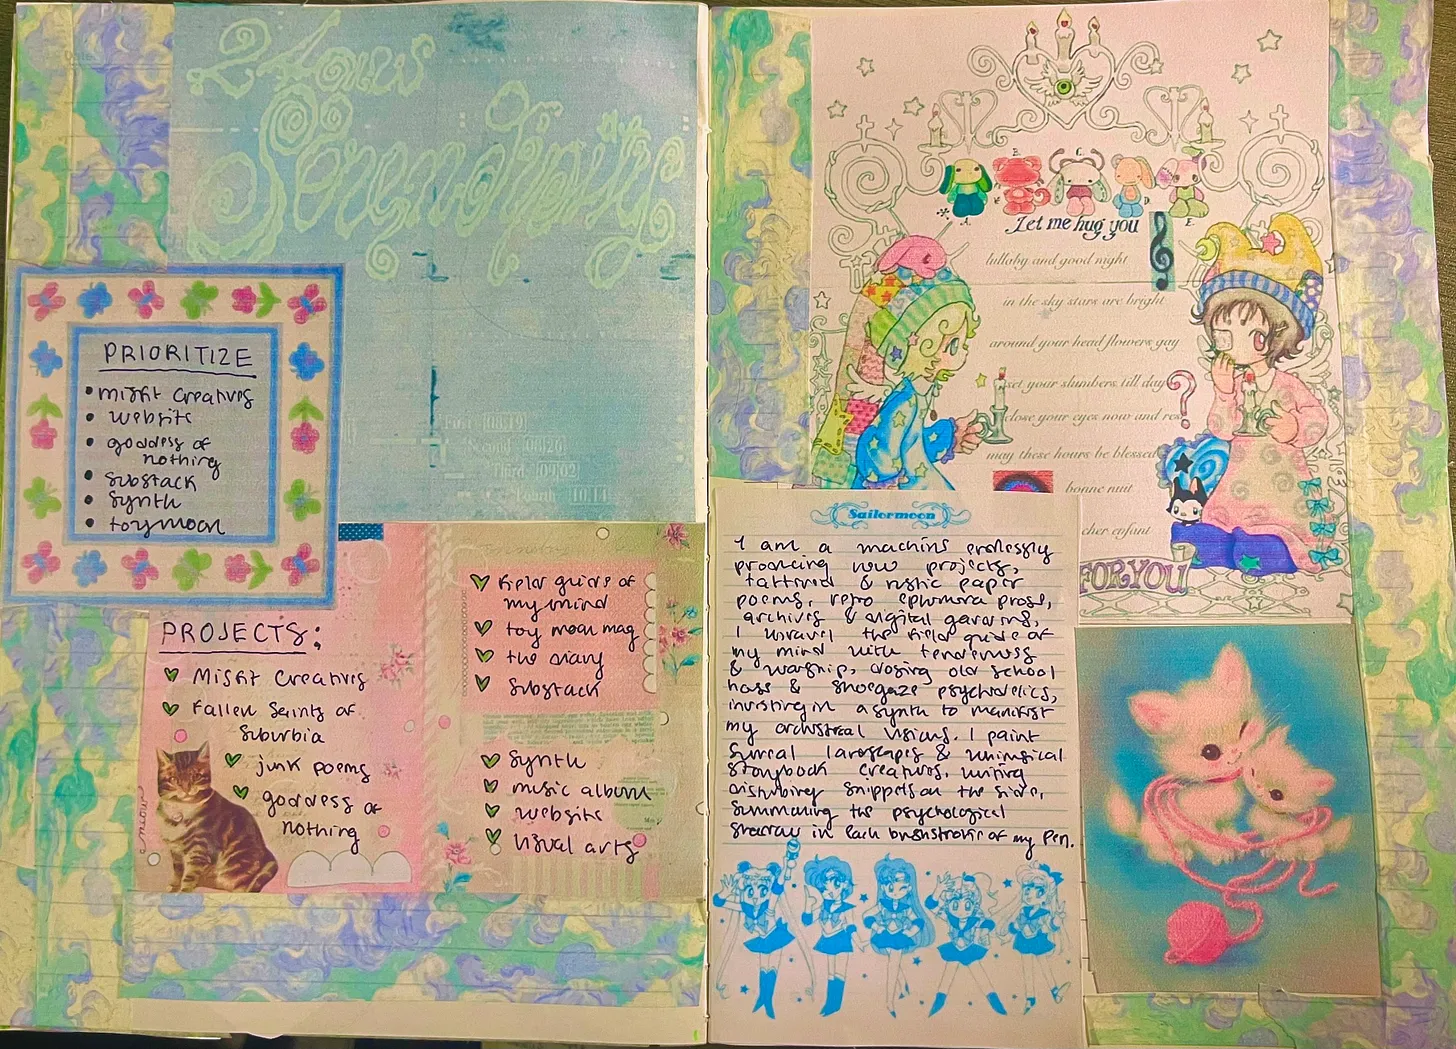 24 Hours
Serendipity
PRIORITIZE
• misfit creatives
• website
• goddess of
nothing
• substack
• synth
• toymoon
First [08.19]
[09.26]
Third [09.02]
Fourth [10.14]
PROJECTS:
Misfit Creatives
Fallen Saints of
Suburbia
junk poems
goddess of
nothing
meow
field guide of
my mind
toy moon mag
the diary
substack
synth
music album
website
visual arts
A. B. C. D. E.
Let me hug you
lullaby and good night
in the sky stars are bright
around your head flowers gay
set your slumbers till day
close your eyes now and res
may these hours be blessed
bonne nuit
cher enfant
?
FOR YOU
Sailormoon
I am a machine endlessly
producing new projects,
tattered & rustic paper
poems, retro ephemera prose,
archives & digital gardens,
I unravel the field guide of
my mind with tenderness
& worship, dosing old school
bass & shoegaze psychedelics,
investing in a synth to manifest
my orchestral visions. I paint
surreal landscapes & whimsical
storybook creatures, writing
disturbing snippets on the side,
summoning the psychological
shadow in each brushstroke of my pen.